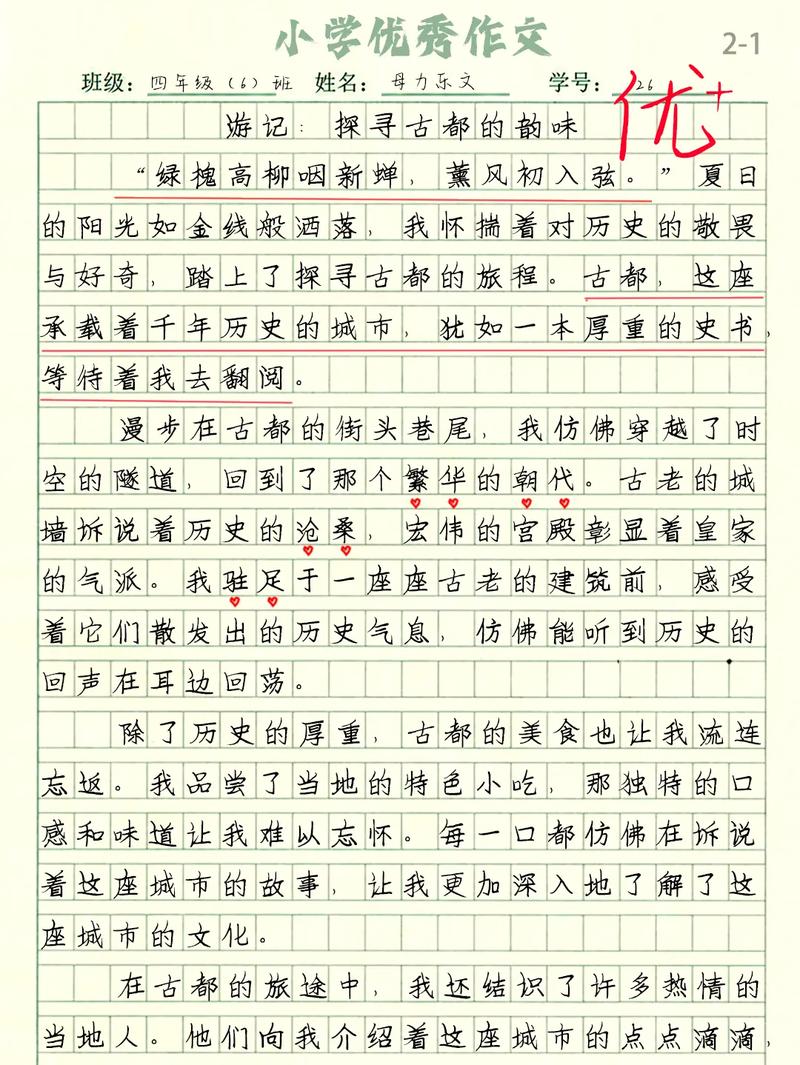 小学优秀作文
2-1
班级：四年级（6）班 姓名：母力乐文 学号：26
优+
游记：探寻古都的韵味
“绿槐高柳咽新蝉，薰风初入弦。”夏日
的阳光如金线般洒落，我怀揣着对历史的敬畏
与好奇，踏上了探寻古都的旅程。古都，这座
承载着千年历史的城市，犹如一本厚重的史书，
等待着我去翻阅。
漫步在古都的街头巷尾，我仿佛穿越了时
空的隧道，回到了那个繁华的朝代。古老的城
墙诉说着历史的沧桑，宏伟的宫殿彰显着皇家
的气派。我驻足于一座座古老的建筑前，感受
着它们散发出的历史气息，仿佛能听到历史的
回声在耳边回荡。
除了历史的厚重，古都的美食也让我流连
忘返。我品尝了当地的特色小吃，那独特的口
感和味道让我难以忘怀。每一口都仿佛在诉说
着这座城市的故事，让我更加深入地了解了这
座城市的文化。
在古都的旅途中，我还结识了许多热情的
当地人。他们向我介绍着这座城市的点点滴滴，